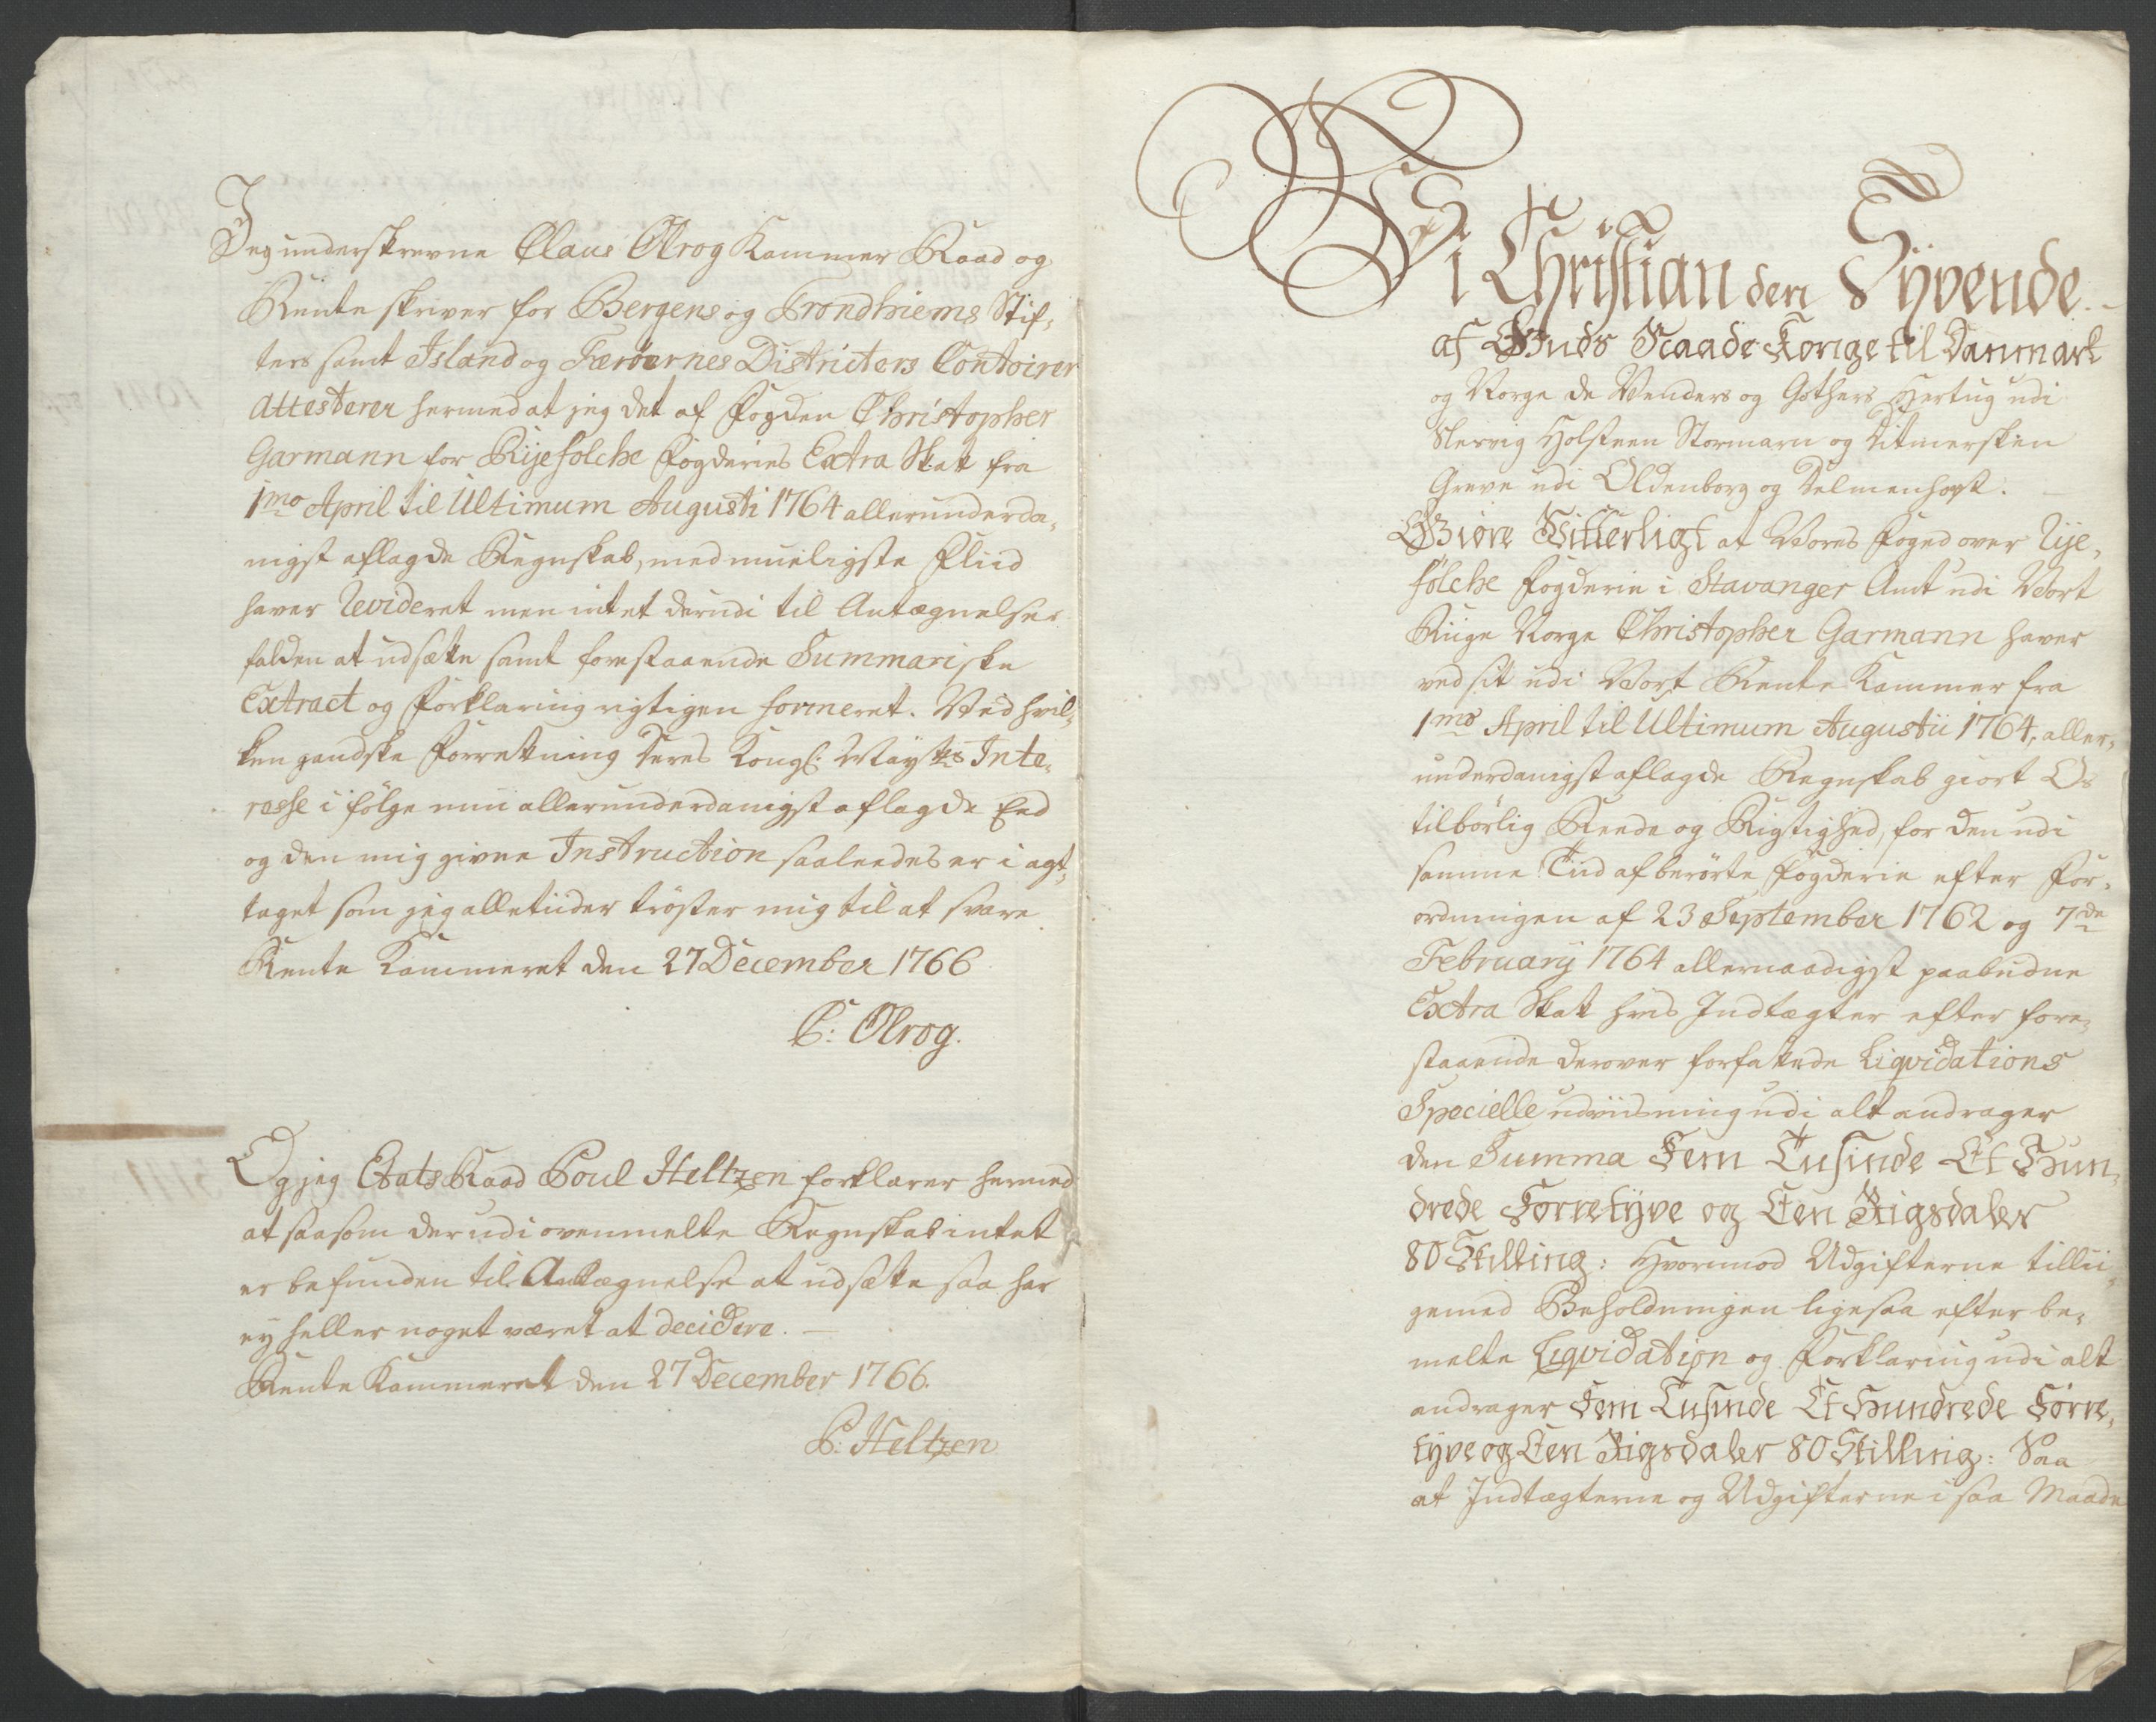 Jeg underskrevne Claus Olrog Kammer Raad og
Rente skriver for Bergens og Trondhiems Stif-
ters samt Island og Færöernes Districters Contoirer
Attesterer hermed at jeg det af Fogden Christopher
Garmann for Rijefolche Fogderies Extra Skat fra
1mo April til Ultimum Augusti 1764 allerunderda-
nigst aflagde Regnskab, med mueligste Fliid
haver Revideret men intet derudi til Antægnelse
falden at udsætte samt forestaaende Summariske
Extract og Forklaring rigtigen formeret. Ved hvil-
ken gandske Forretning Deres Kongl: Mayts Inte-
resse i følge min allerunderdanigst aflagde Eed
og den mig givne Instruction saaledes er i agt-
taget som jeg alletiider trøster mig til at svare
Rente Kammeret den 27 December 1766
C: Olrog.
Og jeg Etats Raad Poul Heltzen forklarer hermed
at saasom derudi ovenmelte Regnskab intet
er befunden til Antægnelse at udsætte saa har
ey heller noget været at decidere.
Rente Kammeret den 27 December 1766.
P: Heltzen
Vi Christian den Syvende
af Guds Naade Konge til Danmark
og Norge de Venders og Gothers Hertug udi
Slesvig Holsteen Stormarn og Ditmersken
Greve udi Oldenborg og Delmenhorst.
Giøre Vitterligt at Vores Foged over Rije-
folche Fogderie i Stavanger Amt udi Vort
Riige Norge Christopher Garmann haver
ved sit udi Vort Rente Kammer fra
1mo April til Ultimum Augustii 1764, aller-
underdanigst aflagde Regnskab giort Os
tilbørlig Reede og Rigtighed, for den udi
samme Tiid af berørte Fogderie efter For-
ordningen af 23 September 1762 og 7de
February 1764 allernaadigst paabudne
Extra Skat hvis Indtægter efter fore-
staaende derover forfattede Liqvidations
Specielle udviisning udi alt andrager
den Summa Fem Tusinde Et Hun-
drede Førretyve og Een Rigsdaler
80 Skilling: Hvorimod Udgifterne tillii-
gemed Beholdningen ligesaa efter be-
melte Liqvidation og Forklaring udi alt
andrager Fem Tusinde Et Hundrede Førre-
tyve og Een Rigsdaler 80 Skilling: Saa
at Indtægterne og Udgifterne i saa Maade